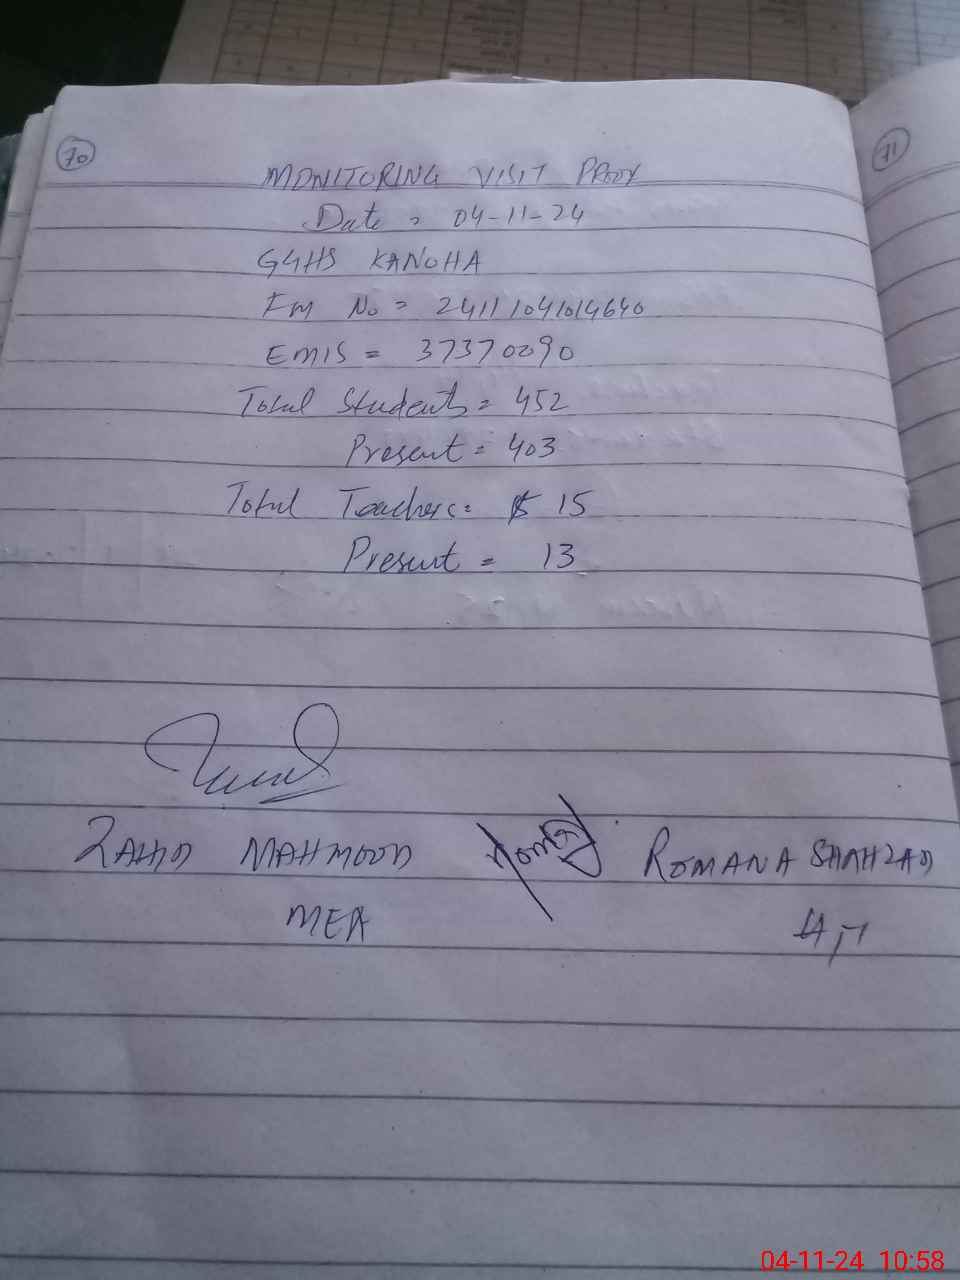 70
71
MONITORING VISIT PROOF
Date = 04-11-24
GGHS KANOHA
Fm No = 24111041014640
EMIS = 37370090
Total Students = 452
Present = 403
Total Teachers = 15
Present = 13
ZAHID MAHMOOD
ROMANA SHAHZAD
MEA
04-11-24 10:58